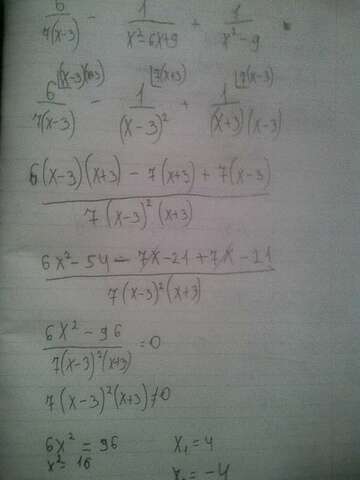 6/7(x-3) - 1/x²-6x+9 + 1/x²-9
6/7(x-3) (x-3)(x+3) - 1/(x-3)² 7(x+3) + 1/(x+3)(x-3) 7(x-3)
6(x-3)(x+3) - 7(x+3) + 7(x-3)/7(x-3)²(x+3)
6x²-54-7x-21+7x-21/7(x-3)²(x+3)
6x²-96/7(x-3)²(x+3) =0
7(x-3)²(x+3)≠0
6x² = 96 x₁=4
x²=16 x₂=-4